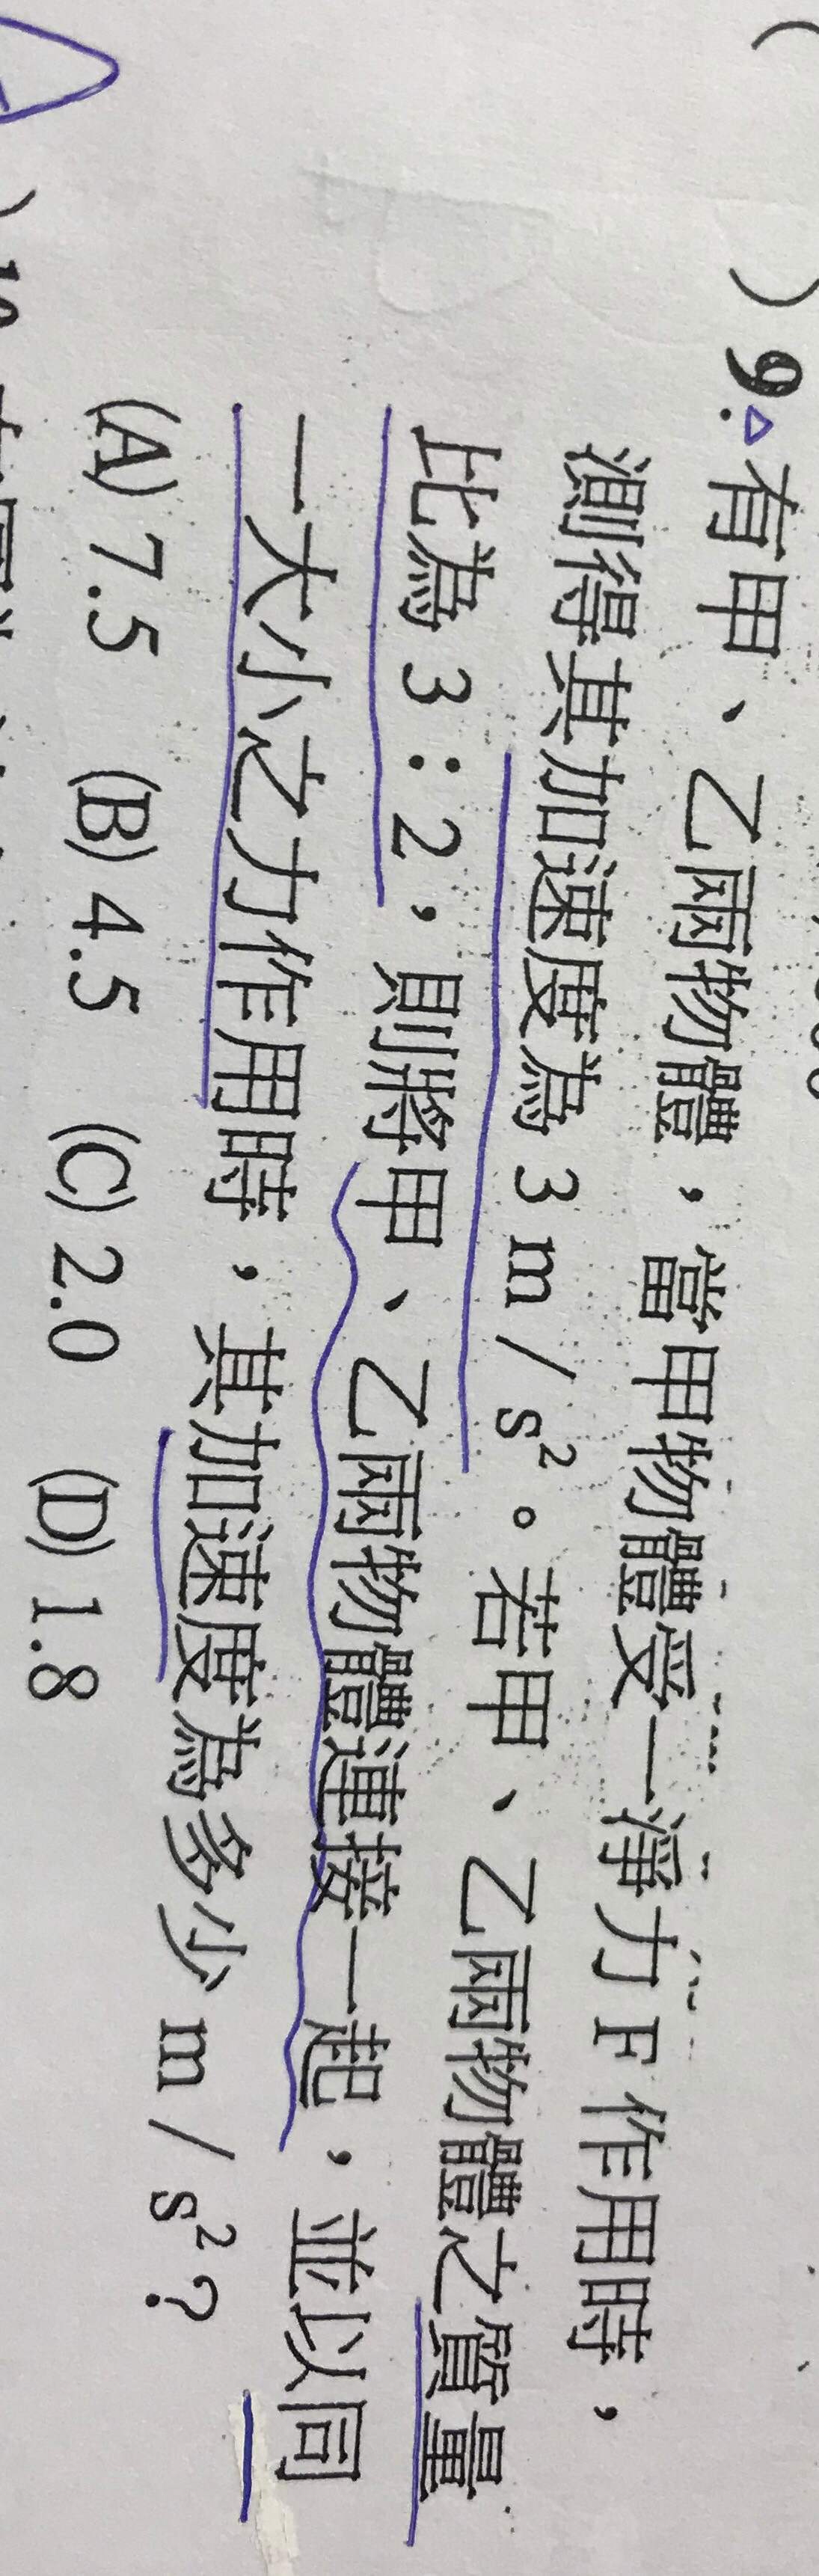 ( )9.有甲、乙兩物體，當甲物體受一淨力F作用時，
測得其加速度為3 m / s²。若甲、乙兩物體之質量
比為3：2，則將甲、乙兩物體連接一起，並以同
一大小之力作用時，其加速度為多少m / s²？
(A) 7.5 (B) 4.5 (C) 2.0 (D) 1.8
)10.